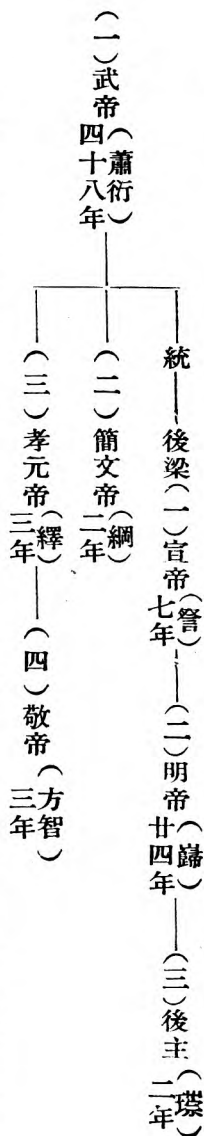 （一）武帝（蕭衍）四十八年
統 後梁（一）宣帝（詧）七年 （二）明帝（巋）廿四年 （三）後主（琮）二年
（二）簡文帝（綱）二年
（三）孝元帝（繹）三年 （四）敬帝（方智）三年